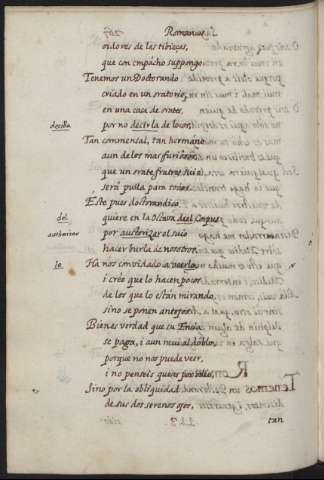 Romances
oidores de las tibieças,
que con empacho suppongo.
Tenemos un Doctorando
criado en un oratorio,
en una casa de orates,
por no decirla de locos;
decilla
Tan commensal, tan hermano
aun de los mas furiosos,
que un orate frates
será pulla para todos.
Este pues doctorandico
quiere en la Octava del Corpus
del
por autorizer el suio
authorizar
hacer burla de nosotros.
Ha nos convidado a verlo,
lo
i creo que lo hacen pocos
de los que lo estan mirando,
sino se ponen anteojos.
Bien es verdad que su
se paga, i aun
porque no nos puede veer,
i no penseis que es por
Sino por la obliquidad
de sus dos serenos ojos,
tan